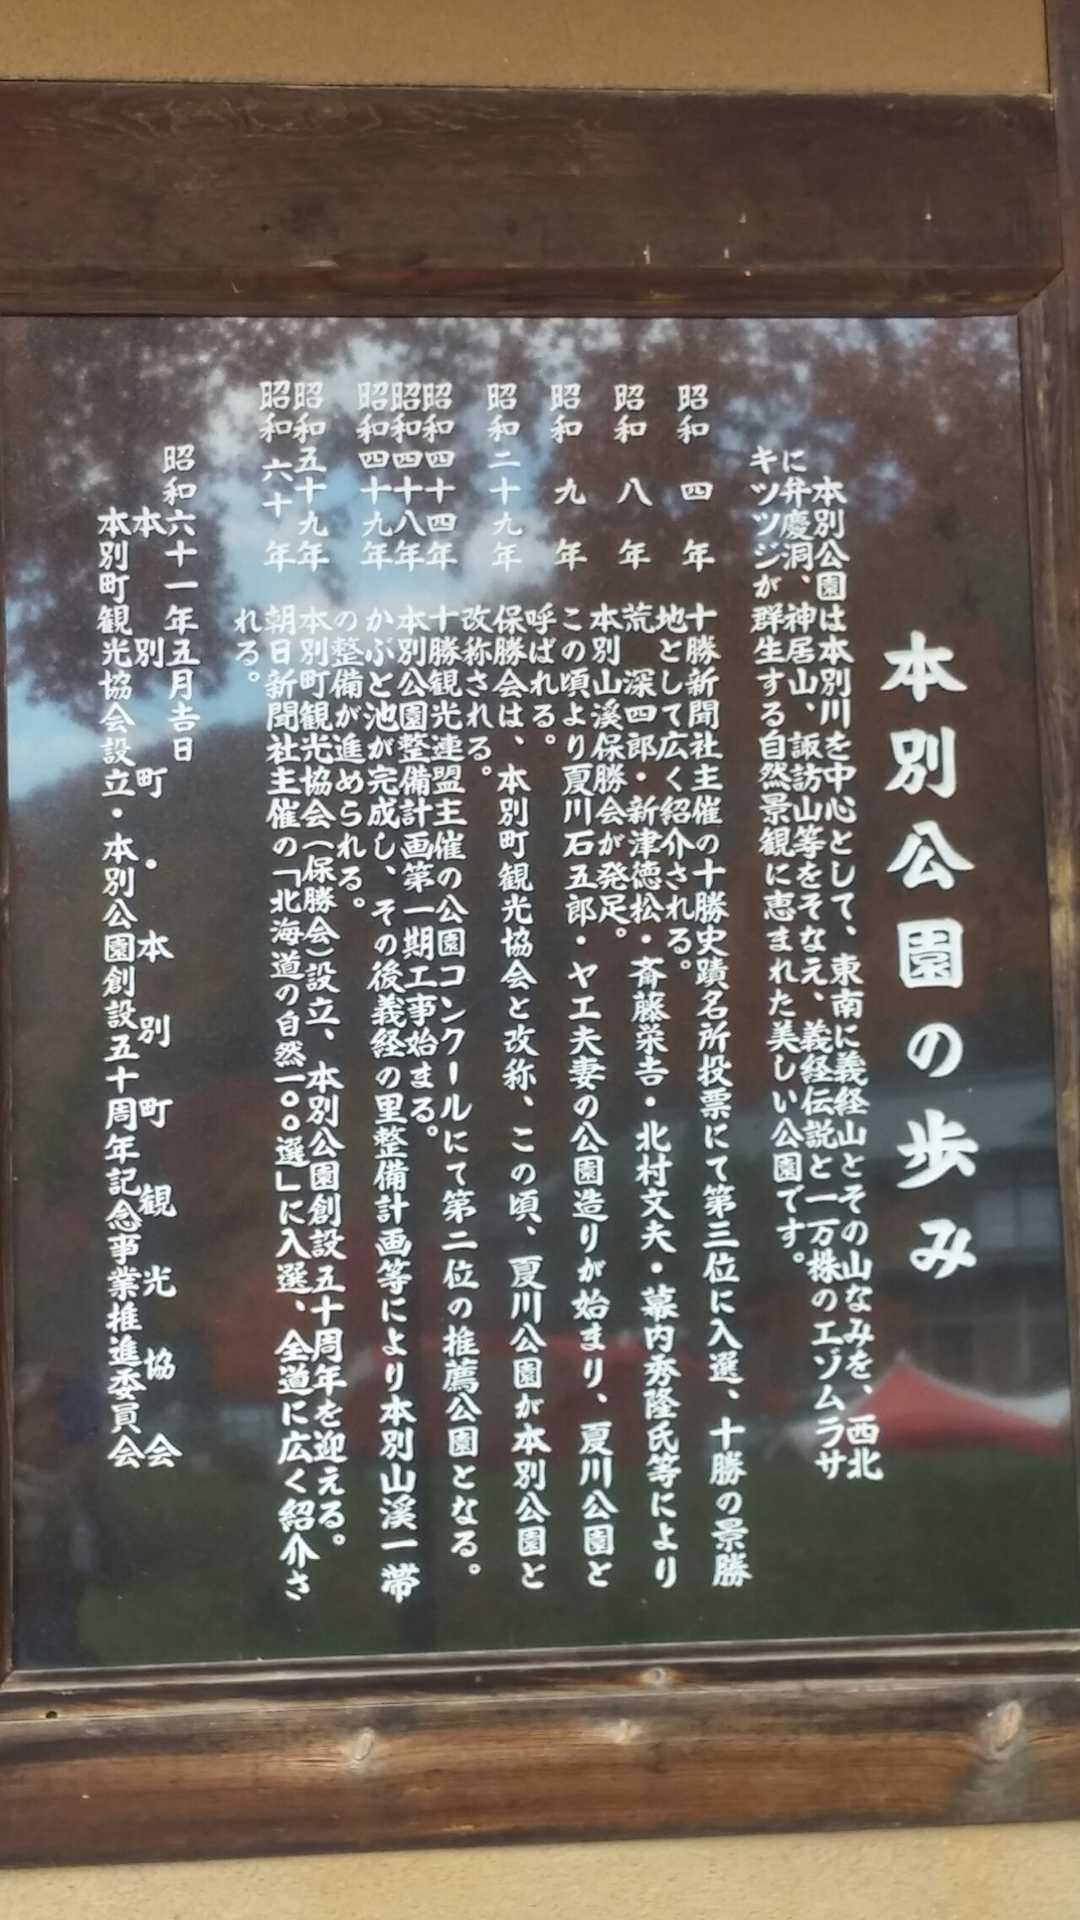 本別公園の歩み
本別公園は本別川を中心として、東南に義経山とその山なみを、西北
に弁慶洞、神居山、諏訪山等をそなえ、義経伝説と一万株のエゾムラサ
キツツジが群生する自然景観に恵まれた美しい公園です。
昭和 四 年 十勝新聞社主催の十勝史蹟名所投票にて第三位に入選、十勝の景勝
地として広く紹介される。
昭和 八 年 荒 深四郎・新津徳松・斎藤栄吉・北村文夫・幕内秀隆氏等により
本別山溪保勝会が発足。
昭和 九 年 この頃より夏川石五郎・ヤエ夫妻の公園造りが始まり、夏川公園と
呼ばれる。
昭和二十九年 保勝会は、本別町観光協会と改称、この頃、夏川公園が本別公園と
改称される。
昭和四十四年 十勝観光連盟主催の公園コンクールにて第二位の推薦公園となる。
昭和四十八年 本別公園整備計画第一期工事始まる。
昭和四十九年 かぶと池が完成し、その後義経の里整備計画等により本別山溪一帯
の整備が進められる。
昭和五十九年 本別町観光協会(保勝会)設立、本別公園創設五十周年を迎える。
昭和 六十 年 朝日新聞社主催の「北海道の自然一〇〇選」に入選、全道に広く紹介さ
れる。
昭和六十一年五月吉日
本別町・本別町観光協会
本別町観光協会設立・本別公園創設五十周年記念事業推進委員会